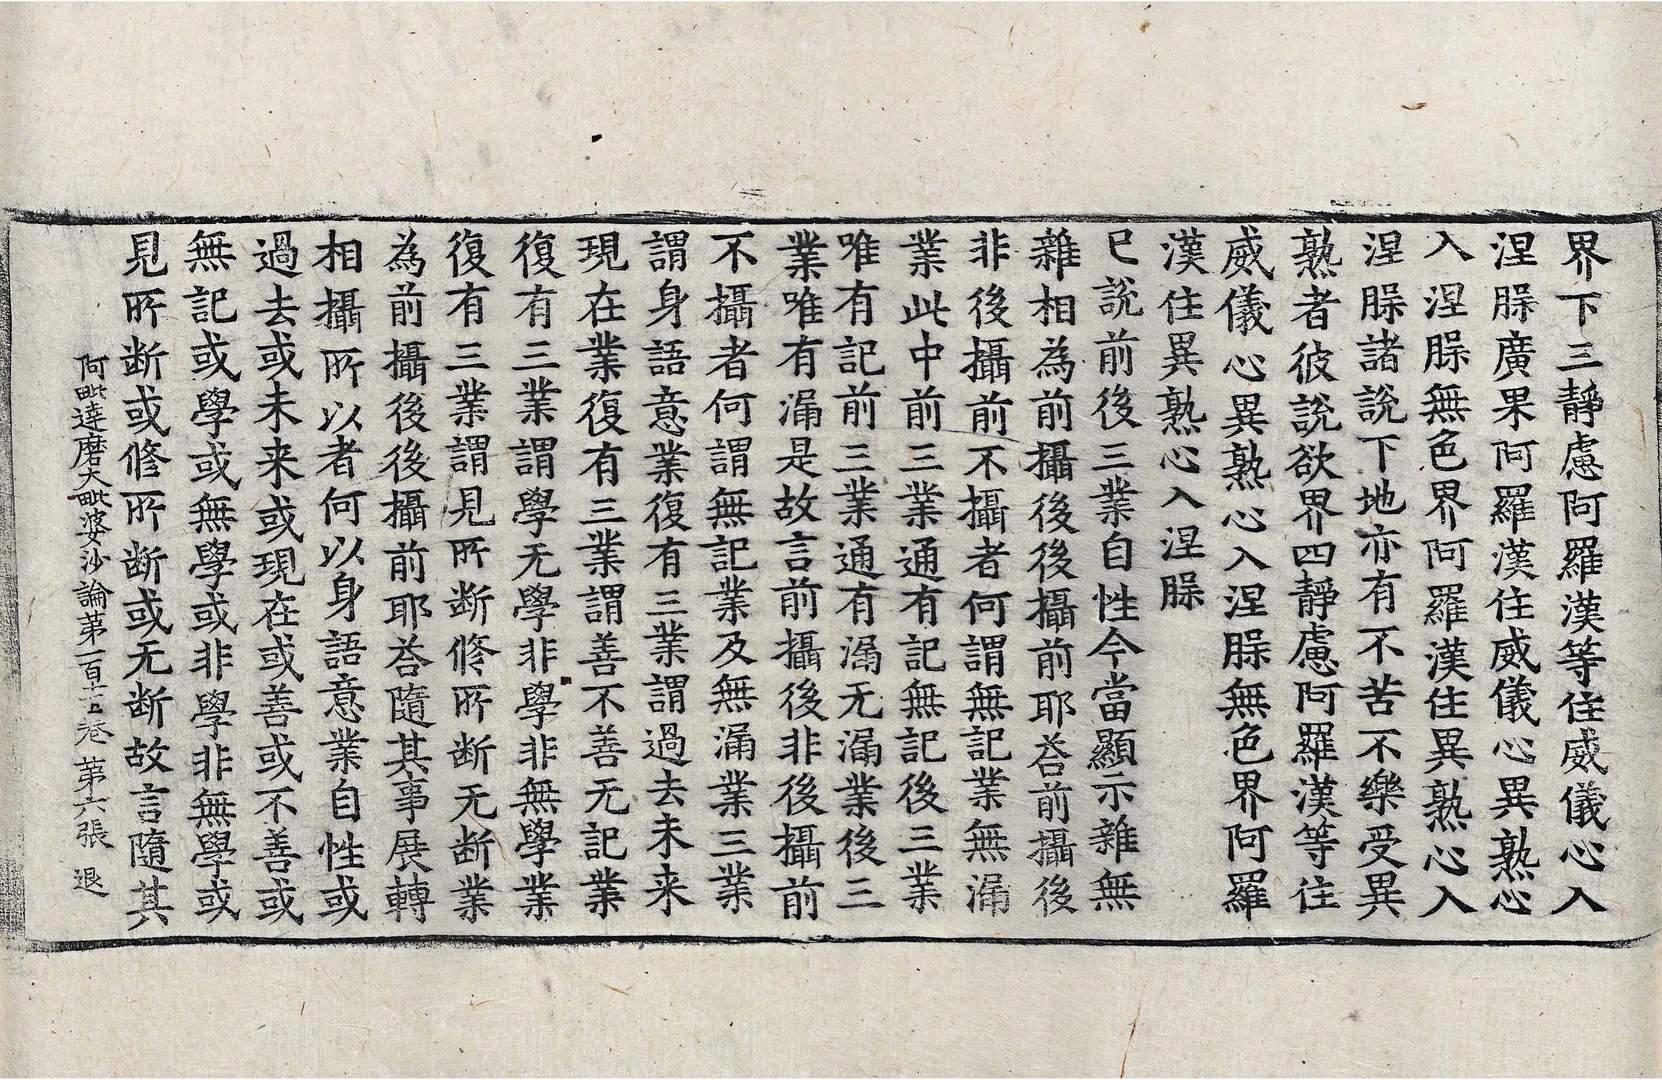 界下三靜慮阿羅漢等住威儀心入
涅腂廣果阿羅漢住威儀心異熟心
入涅腂無色界阿羅漢住異熟心入
涅腂諸說下地亦有不苦不樂受異
熟者彼說欲界四靜慮阿羅漢等住
威儀心異熟心入涅腂無色界阿羅
漢住異熟心入涅腂
已說前後三業自性今當顯示雜無
雜相為前攝後後攝前耶荅前攝後
非後攝前不攝者何謂無記業無漏
業此中前三業通有記無記後三業
唯有記前三業通有漏无漏業後三
業唯有漏是故言前攝後非後攝前
不攝者何謂無記業及無漏業三業
謂身語意業復有三業謂過去未来
現在業復有三業謂善不善无記業
復有三業謂學无學非學非無學業
復有三業謂見所断修所断无断業
為前攝後後攝前耶荅隨其事展轉
相攝所以者何以身語意業自性或
過去或未来或現在或善或不善或
無記或學或無學或非學非無學或
見所断或修所断或无断故言隨其
阿毗達磨大毗婆沙論苐一百十五卷 苐六張 退